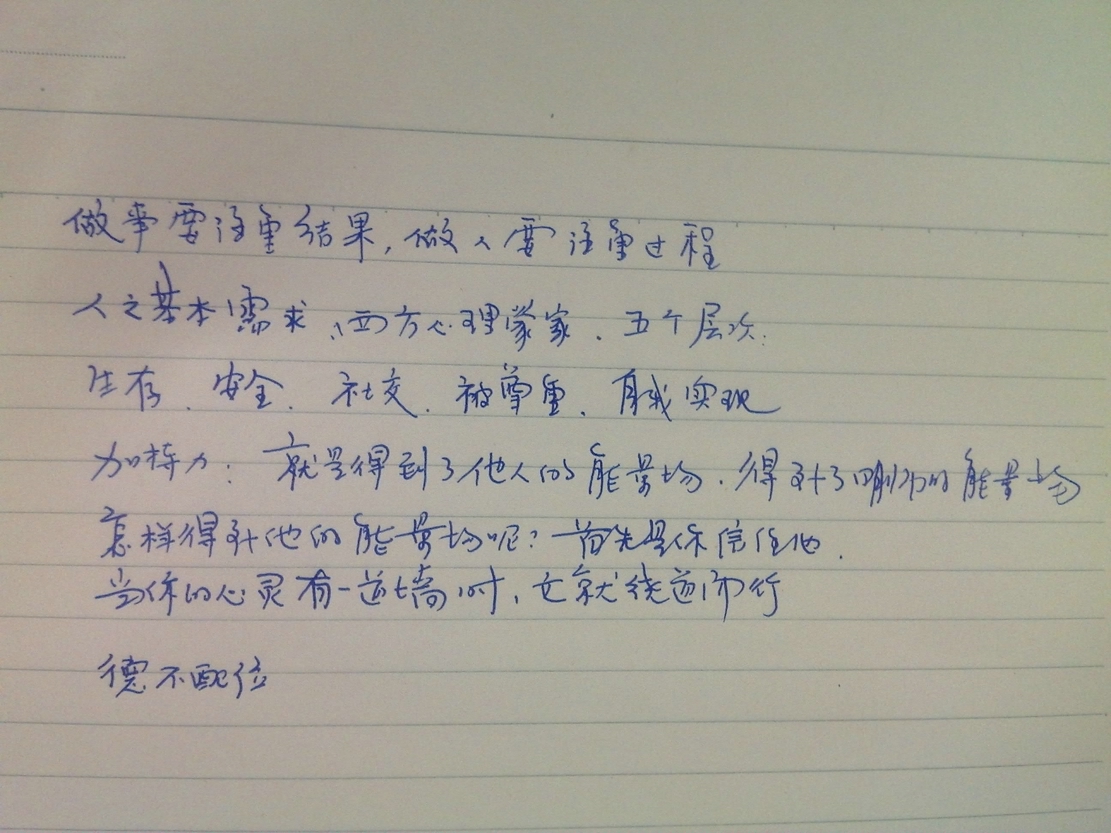 做事要注重结果，做人要注重过程
人之基本需求、西方心理学家、五个层次：
生存、安全、社交、被尊重、自我实现
加持力：就是得到了他人的能量场、得到了的能量场
怎样得到他的能量场呢？首先是你信任他。
当你的心灵有一道墙时，它就绕道而行
德不配位